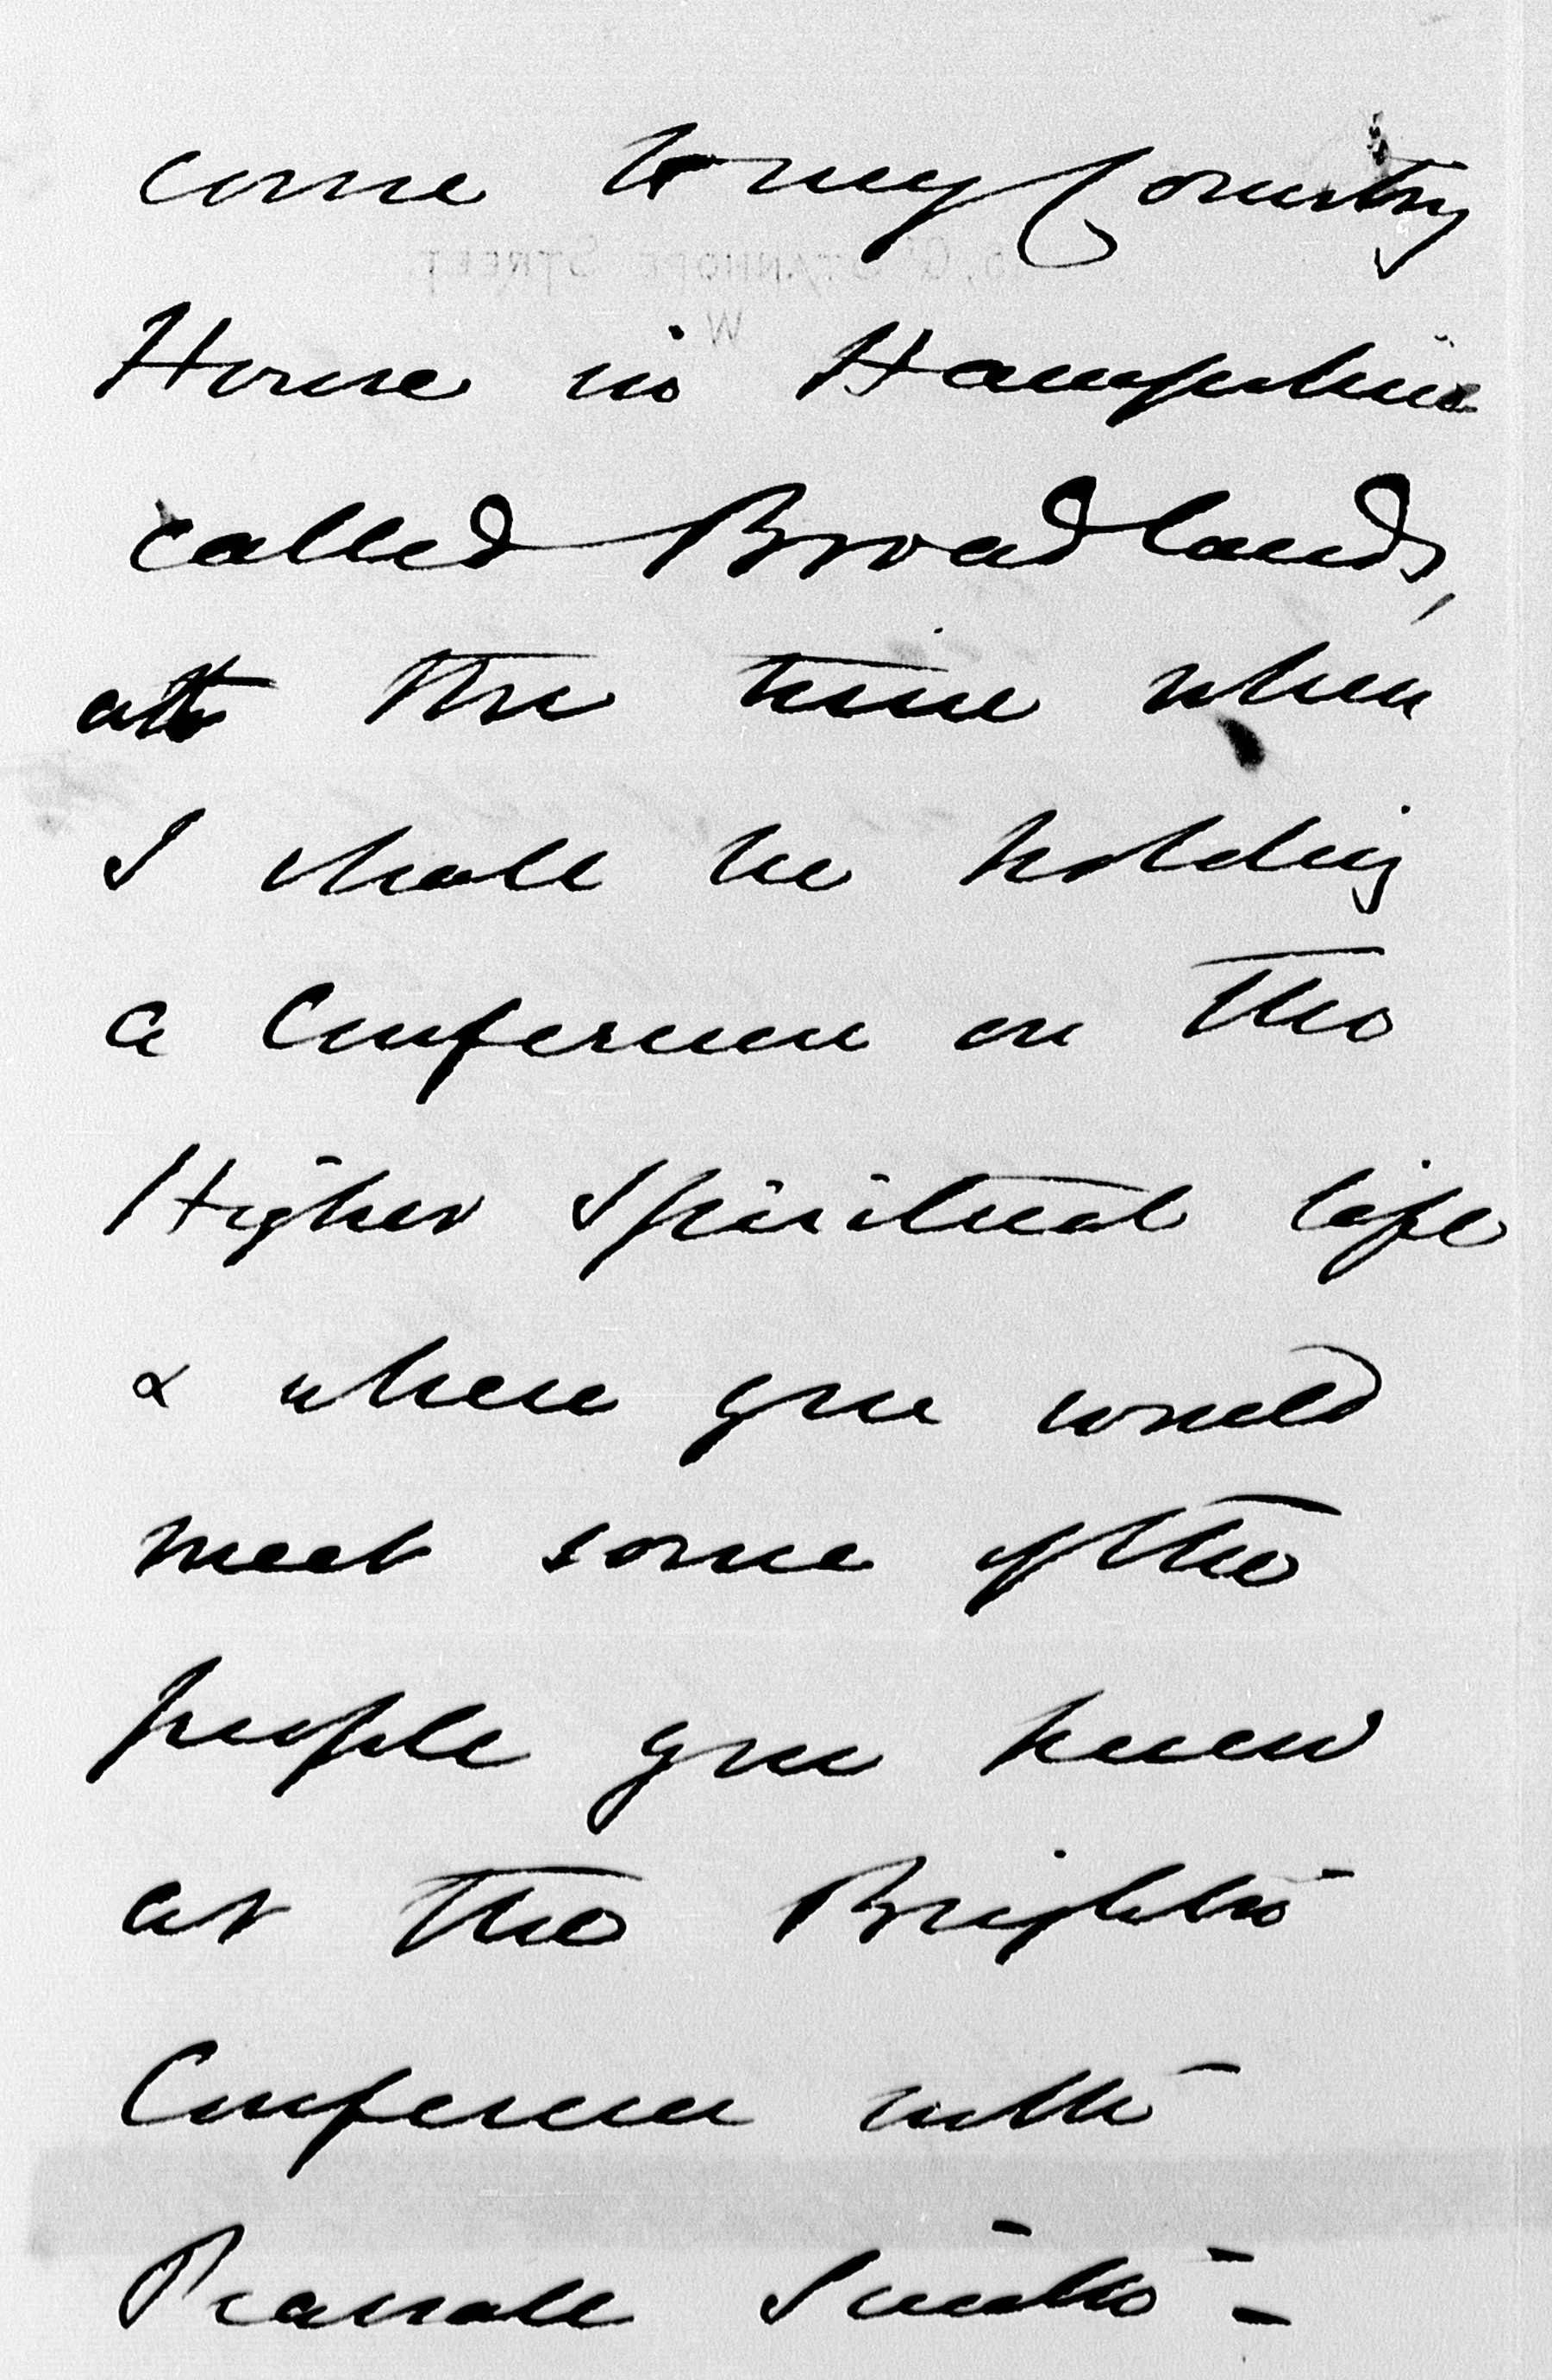 come to my Country
House in Hampshire
called Broadlands,
at the time when
I shall be holding
a Conference on the
Higher Spiritual life
& where you would
meet some of the
people you knew
at the Brighton
Conference with
Pearsall Smith -